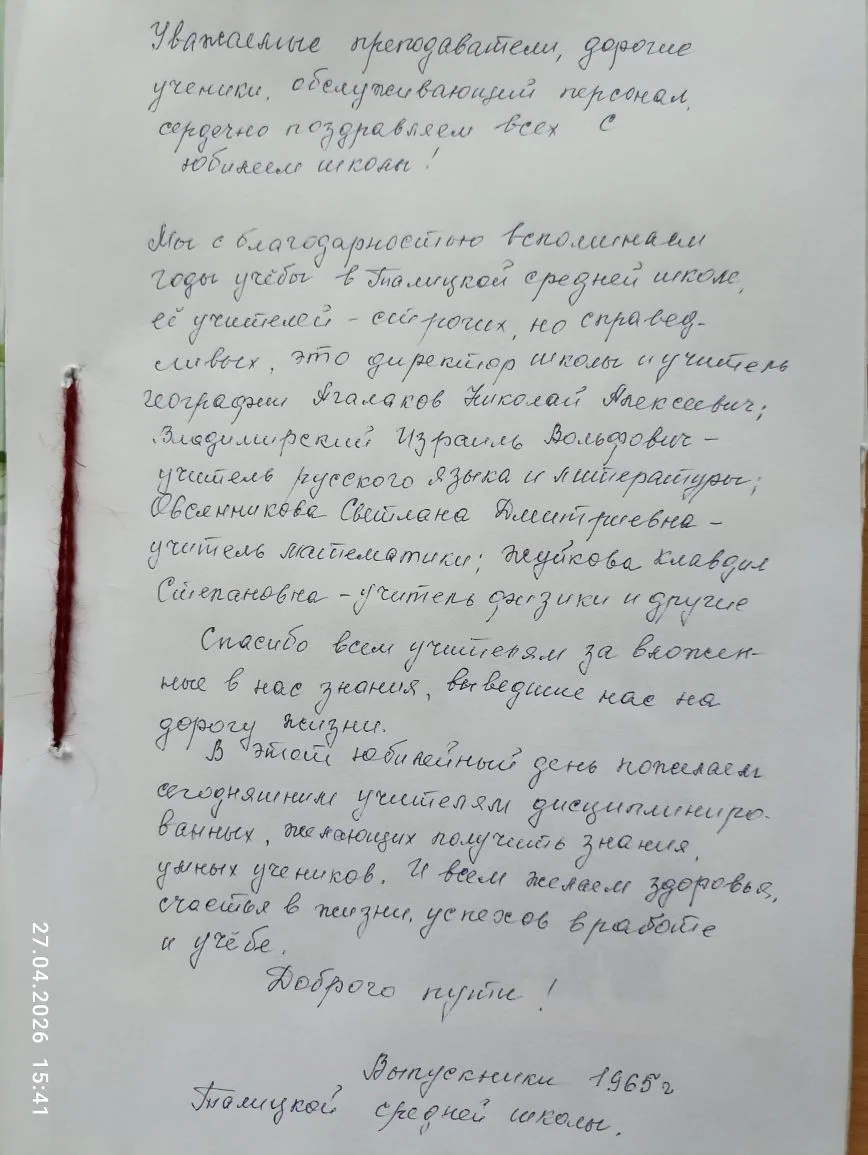 Уважаемые преподаватели, дорогие
ученики, обслуживающий персонал,
сердечно поздравляем всех с
юбилеем школы!
Мы с благодарностью вспоминаем
годы учёбы в Талицкой средней школе,
её учителей - строгих, но справед-
ливых, это директор школы и учитель
географии Агалаков Николай Алексеевич;
Владимирский Израиль Вольфович -
учитель русского языка и литературы;
Овсянникова Светлана Дмитриевна -
учитель математики; Жуйкова Клавдия
Степановна - учитель физики и другие
Спасибо всем учителям за вложен-
ные в нас знания, выведшие нас на
дорогу жизни.
В этот юбилейный день пожелаем
сегодняшним учителям дисциплиниро-
ванных, желающих получить знания,
умных учеников. И всем желаем здоровья,
счастья в жизни, успехов в работе
и учёбе.
Доброго пути!
Выпускники 1965г
Талицкой средней школы.
27.04.2026 15:41